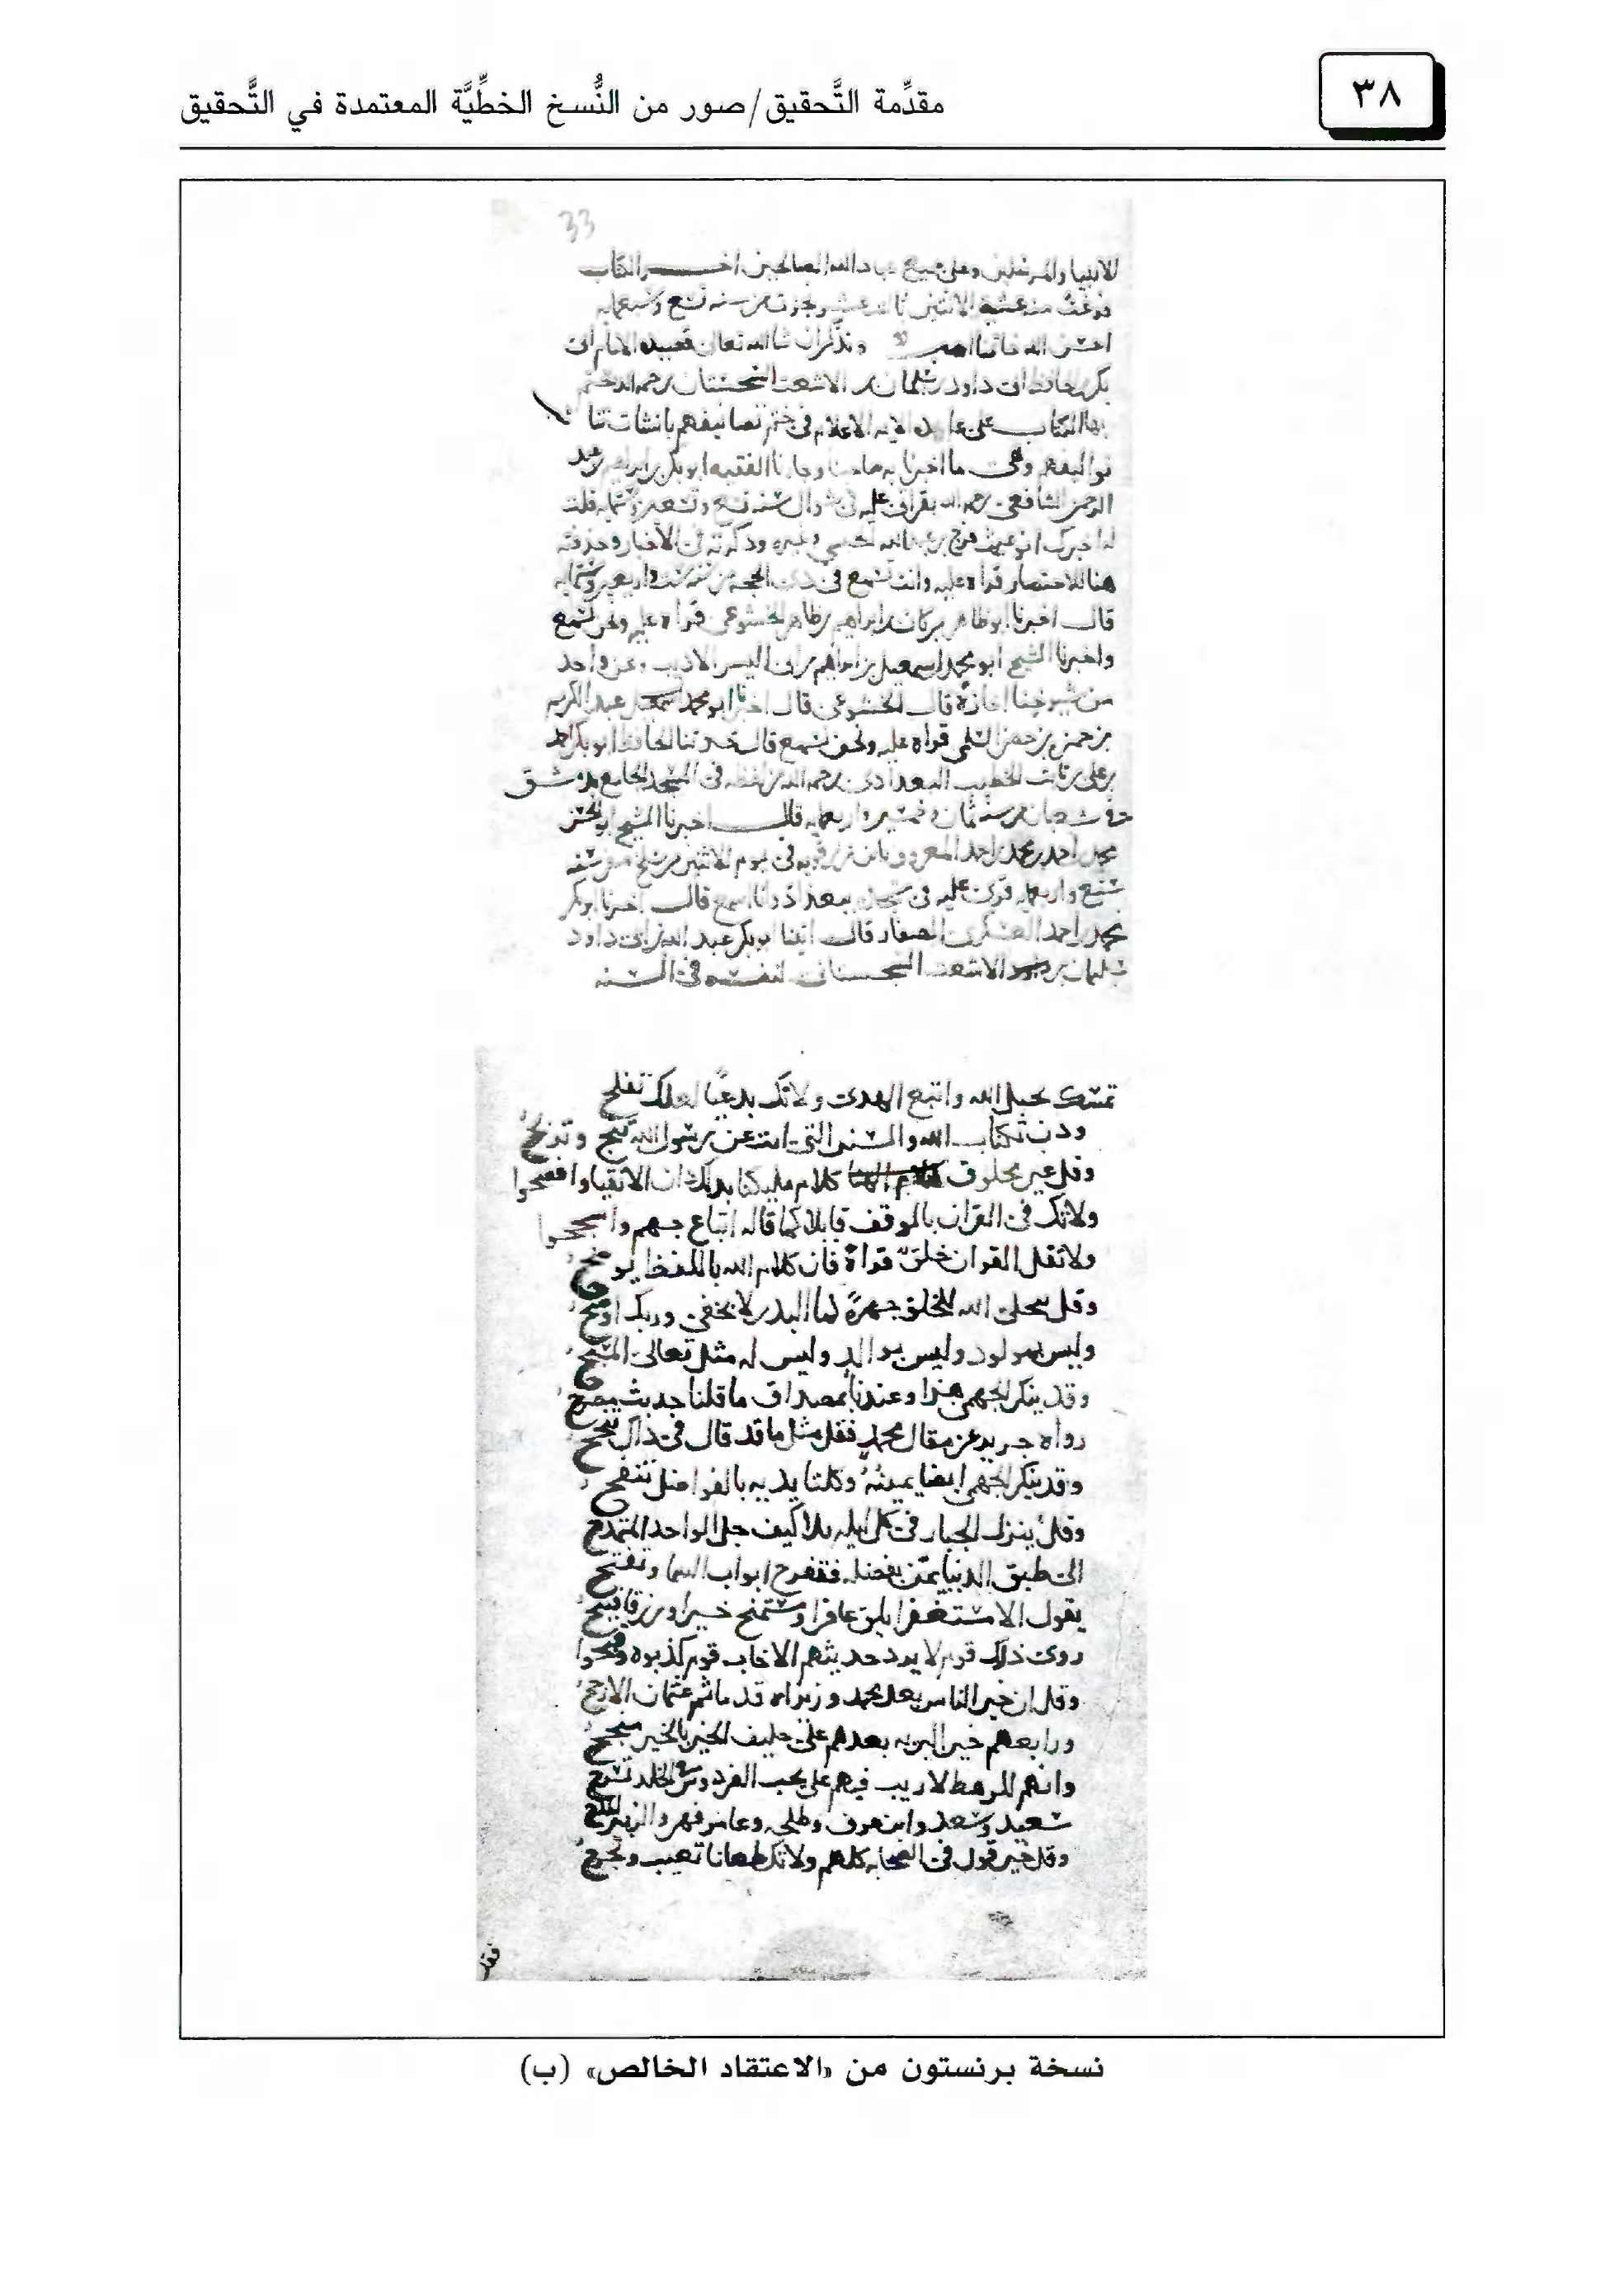 ٣٨
مقدِّمة التَّحقيق/صور من النُّسخ الخطِّيَّة المعتمدة في التَّحقيق
33
الانبيا والمرسلين وعلى جميع عباد الله الصالحين اخر الكتاب
فرغت منه عشية الاثنين
احسن الله خاتمتها ونذكر ان شا الله تعالى قصيدة الامام ابى
بكر الحافظ ابن داود سليمان بن الاشعث السجستاني رحمه الله نختم
بها الكتاب على عادة الايمة الاعلام في ختم تصانيفهم بانشادات
تواليفهم وهي ما اخبرنا به صاحبنا وجارنا الفقيه ابو بكر بن ابراهيم بن عبد
الرحمن الشافعي رحمه الله بقراتي عليه في شوال سنة تسع وتسعين وستمايه قلت
هنا للاختصار قراة عليه وانت تسمع في ذي الحجة من سنة
قال اخبرنا ابو طاهر بركات بن ابراهيم بن طاهر الخشوعي قراة عليه ونحن نسمع
واخبرنا الشيخ ابو محمد اسمعيل بن ابراهيم بن ابى اليسر الاديب وغير واحد
من شيوخنا اجازة قال الخشوعي قال اخبرنا ابو محمد عبد الكريم
بن حمزة بن خضر السلمي قراة عليه ونحن نسمع قال حدثنا الحافظ ابو بكر احمد
بن علي بن ثابت الخطيب البغدادي رحمه الله من لفظه في المسجد الجامع بدمشق
في شعبان من سنة ثمان وخمسين واربعمايه قال اخبرنا الشيخ ابو الحسن
محمد بن احمد بن محمد بن احمد المعروف بابن رزقويه في يوم الاثنين
تسع واربعمايه قرى عليه في مسجده ببغداد وانا اسمع قال اخبرنا ابو بكر
محمد بن احمد العسكري الصفار قال انبانا ابو بكر عبد الله بن ابى داود
سليمان بن الاشعث السجستاني لنفسه في السنه
تمسك بحبل الله واتبع الهدى ولا تك بدعيا لعلك تفلح
ودن بكتاب الله والسنن التي اتت عن رسول الله تنج وتربح
وقل غير مخلوق كلام مليكنا بذلك دان الاتقيا وافصحوا
ولا تك في القران بالوقف قايلا كما قاله اتباع جهم واسجحوا
ولا تقل القران خلق قراة فان كلام الله باللفظ يوضح
وقل يتجلى الله للخلق جهرة كما البدر لا يخفى وربك اوضح
وليس بمولود وليس بوالد وليس له مثل تعالى المسبح
وقد ينكر الجهمي هذا وعندنا بمصداق ما قلنا حديث مصرح
رواه جرير عن مقال محمد فقل مثل ما قد قال في ذاك تنجح
وقد ينكر الجهمي ايضا يمينه وكلتا يديه بالفواضل تنفح
وقل ينزل الجبار في كل ليله بلا كيف جل الواحد المتمدح
الى طبق الدنيا يمن بفضله فتفرج ابواب السما وتفتح
يقول الا مستغفرا يلق غافرا ومستمنح خيرا ورزقا فيمنح
روى ذاك قوم لا يرد حديثهم الا خاب قوم كذبوه وقبحوا
وقل ان خير الناس بعد محمد وزيراه قدما ثم عثمان الارجح
ورابعهم خير البريه بعدهم علي حليف الخير بالخير منجح
وانهم للرهط لا ريب فيهم على نجب الفردوس في الخلد تسرح
سعيد وسعد وابن عوف وطلحه وعامر فهر والزبير الممدح
وقل خير قول في الصحابه كلهم ولا تك طعانا تعيب وتجرح
فقد
نسخة برنستون من «الاعتقاد الخالص» (ب)